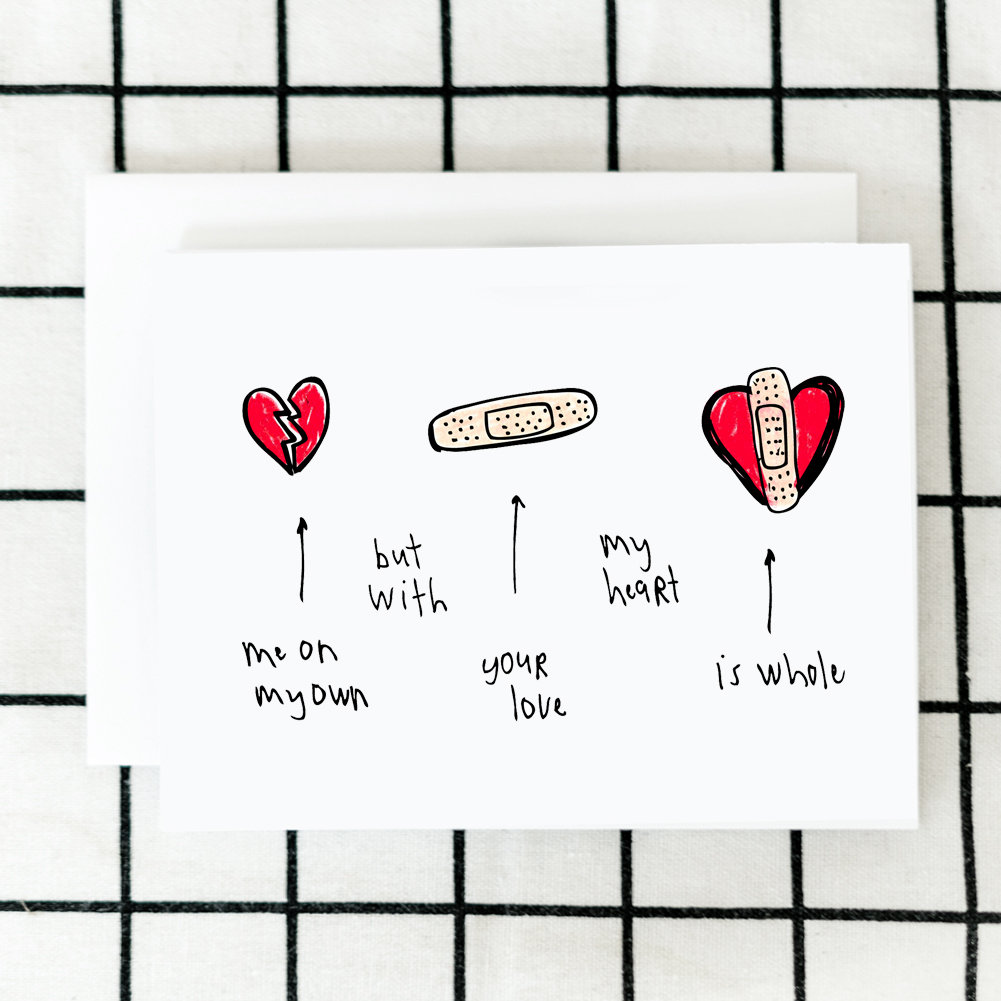 me on
my own
but
with
your
love
my
heart
is whole